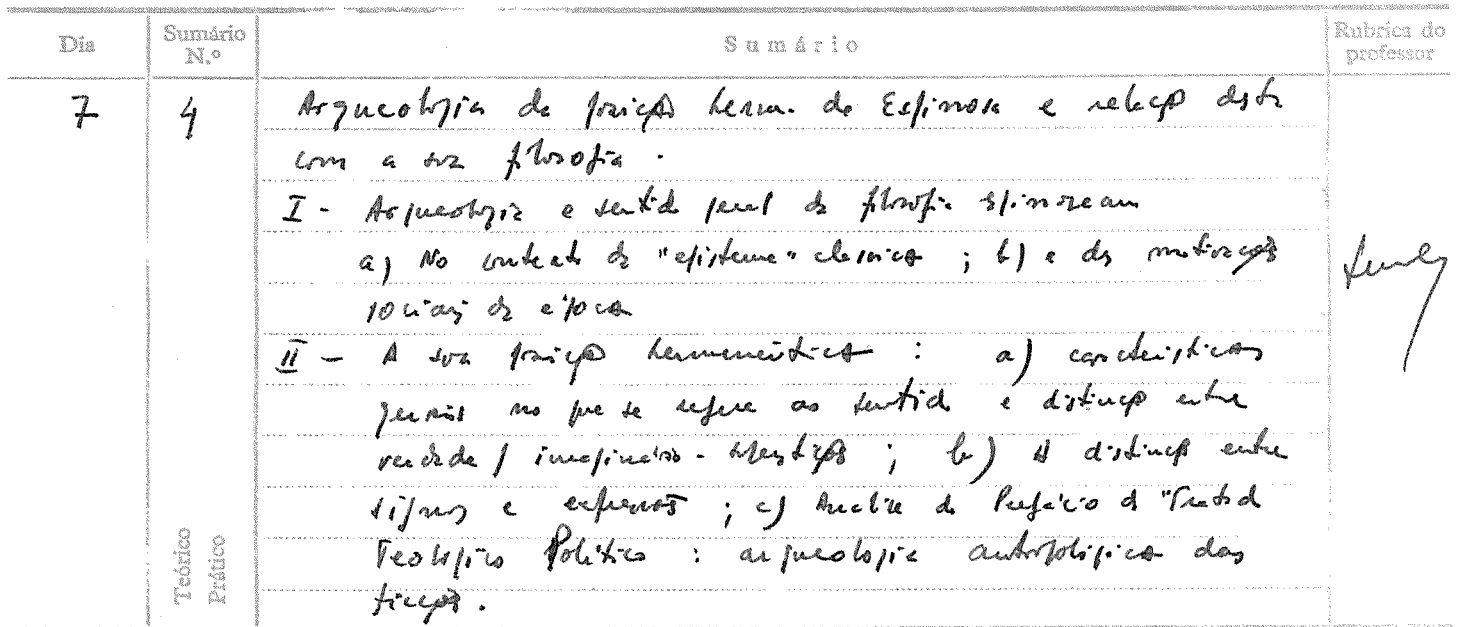 Dia
Sumário N.º
Sumário
Rubrica do professor
7
4
Arqueologia da posição herm. de Espinosa e relação desta
com a sua filosofia.
I - Arqueologia e sentido geral da filosofia espinoseana
a) No contexto da "episteme" clássica ; b) e das motivações
sociais da época
II - A sua posição hermenêutica : a) características
gerais no que se refere ao sentido e distinção entre
verdade / imaginário - ; b) A distinção entre
signos e expressões ; c) Análise do Prefácio do "Tratado
Teológico Político : arqueologia antropológica das
ficções.
Teórico
Prático